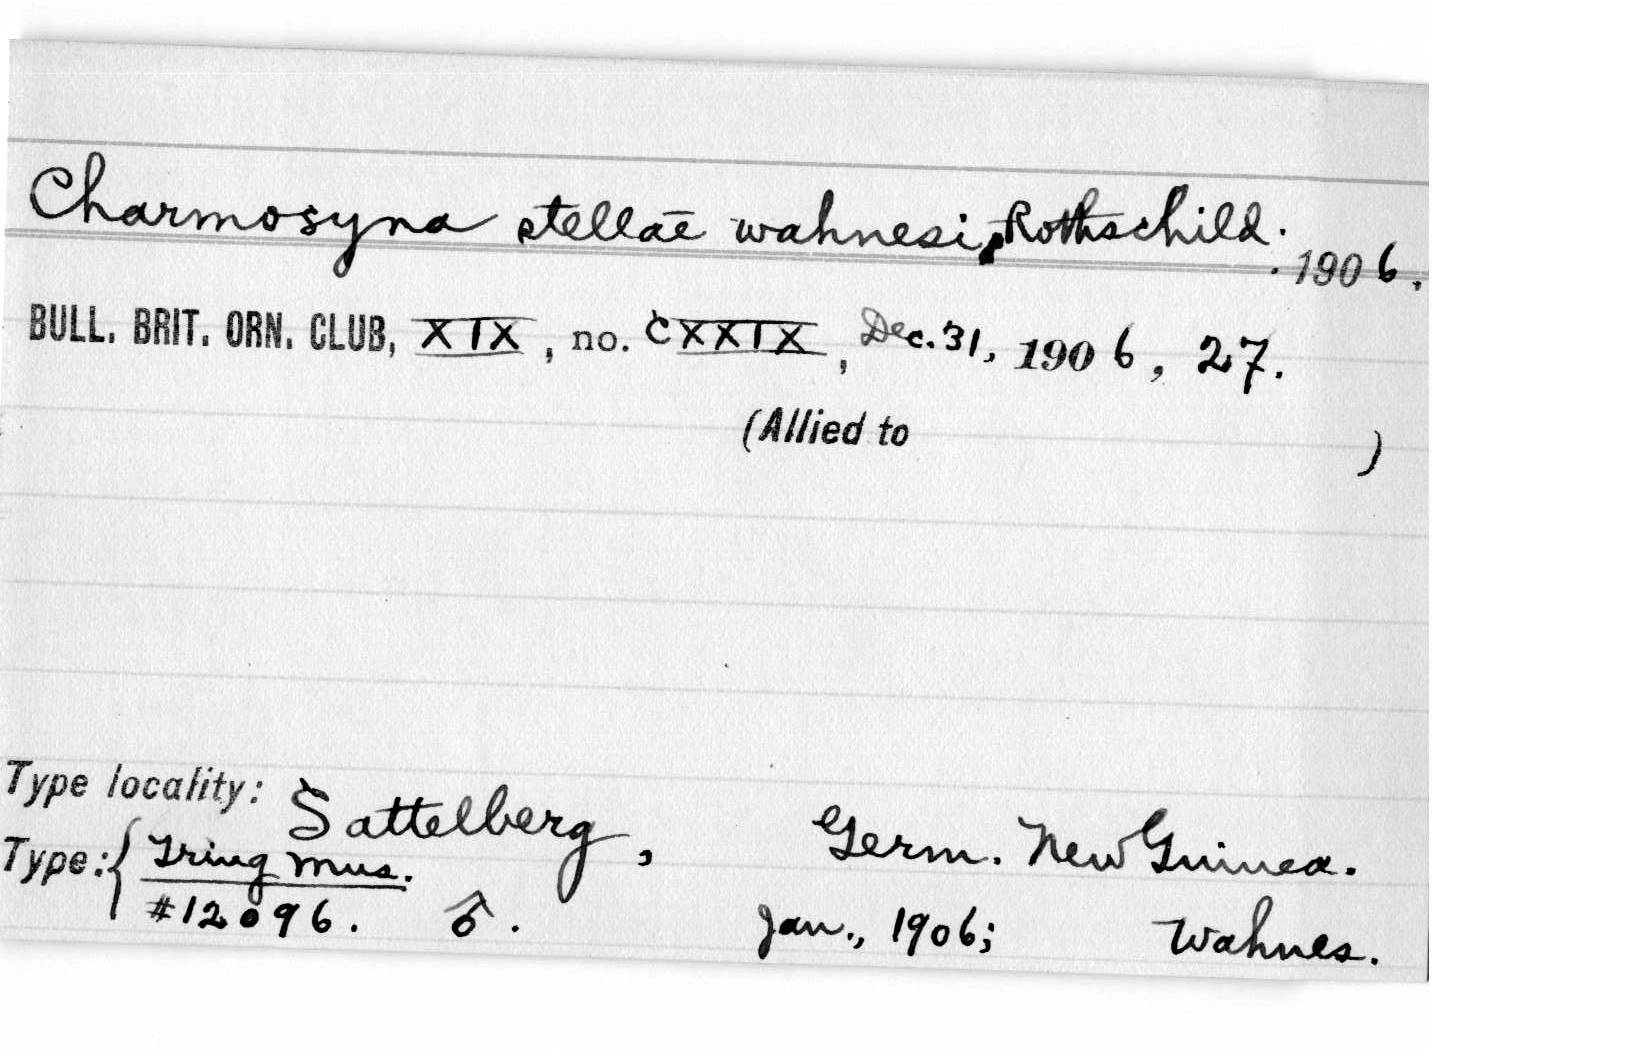 Charmosyna stellae wahnesi, Rothschild. 1906.
BULL. BRIT. ORN. CLUB, XIX, no. CXXIX, Dec. 31, 1906, 27.
(Allied to )
Type locality: Sattelberg, Germ. New Guinea.
Type: { Tring Mus.
#12096. ♂. Jan., 1906; Wahnes.